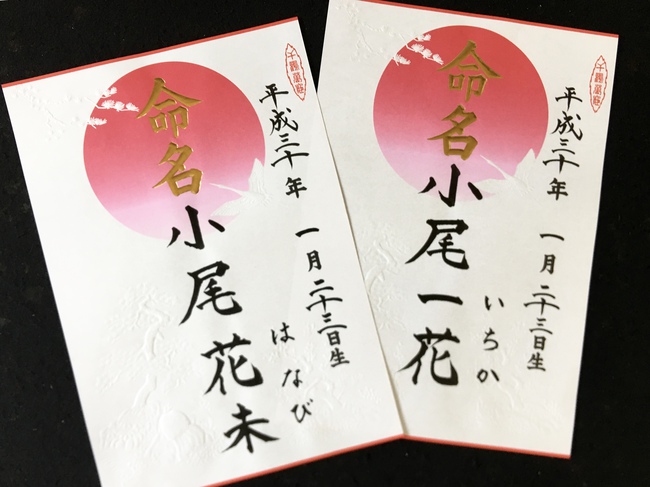 平成三十年 一月二十三日生
いちか
命名 小尾一花
平成三十年 一月二十三日生
はなび
命名 小尾花未